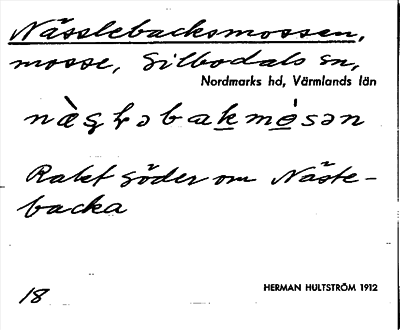 Nässlebacksmossen,
mosse, Silbodals sn,
Nordmarks hd, Värmlands län
Rakt söder om Näste-
backa
18
HERMAN HULTSTRÖM 1912